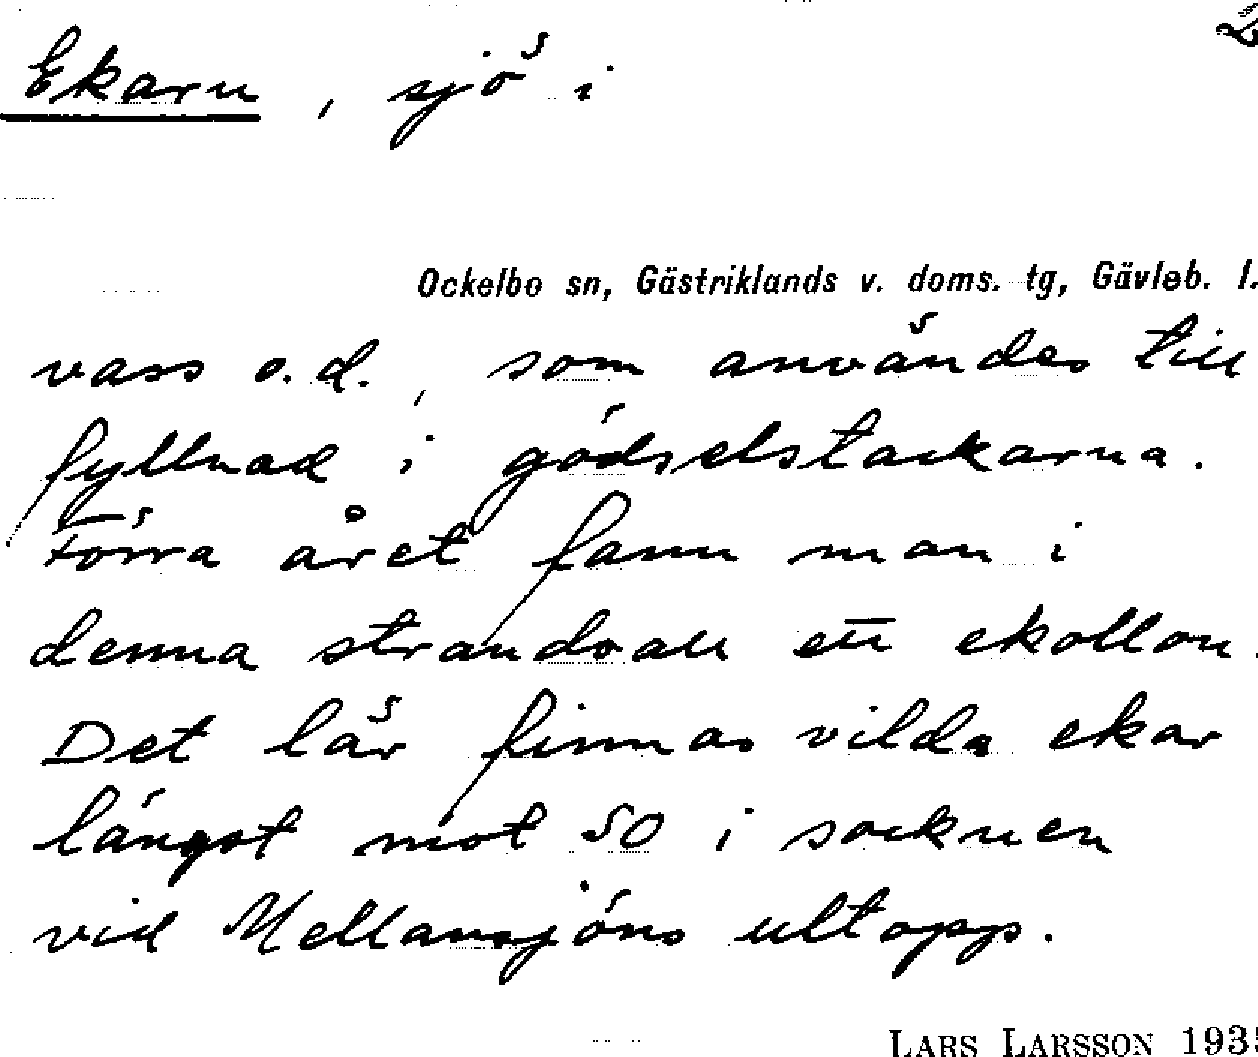 Ekaru, sjö i
2
Ockelbo sn, Gästriklands v. doms. tg, Gävleb. l.
vass o.d., som användes till
fyllnad i gödselstackarna.
Förra året fann man i
denna strandvall ett ekollon.
Det lär finnas vilda ekar
längst mot SO i socknen
vid Mellansjöns utlopp.
LARS LARSSON 1935